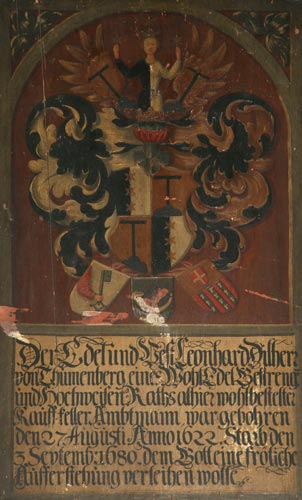 Der Edel und Vest Leonhard Dilherr
von Thumenberg eines Wohl Edel Gestreng
und Hochweisen Raths alhier wohlbestelter
Kauff keller Ambtmann war gebohren
den 27 Augusti Anno 1622. Starb den
3 Septemb: 1680. dem Gott eine fröliche
Aufferstehung verleihen wolle.